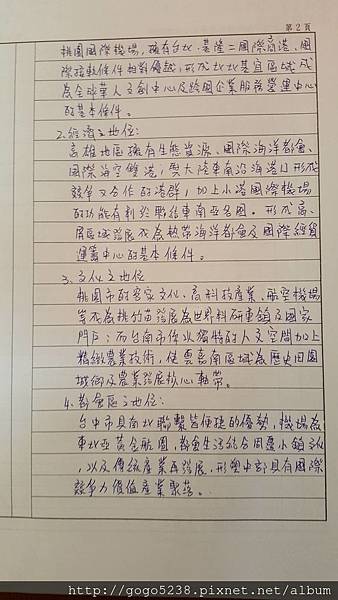 第2頁
桃園國際機場,擁有台北、基隆二國際商港、國
際接軌條件相對優越,形成北北基宜區域成
為全球華人文創中心及跨國企業服務營運中心
的基本條件。
2.經濟之地位:
高雄地區擁有生態資源、國際海洋都會、
國際海空雙港,與大陸東南沿海港口形成
競爭又合作的港群,加上小港國際機場
的功能有利於聯結東南亞各國。形成高、
屏區域發展成為熱帶海洋都會及國際經貿
運籌中心的基本條件。
3.文化之地位
桃園市的客家文化、高科技產業、航空機場
等成為桃竹苗發展為世界科研重鎮及國家
門戶;而台南市併以獨特的人文空間加上
精緻農業技術,使雲嘉南區域為歷史田園
城鄉及農業發展核心軸帶。
4.都會區之地位:
台中市具南北聯繫皆便捷的優勢,機場為
東北亞黃金航圈,都會生活結合周邊小鎮文化
,以及傳統產業再發展,形塑中部具有國際
競爭力價值產業聚落。
http://gogo5238.pixnet.net/album